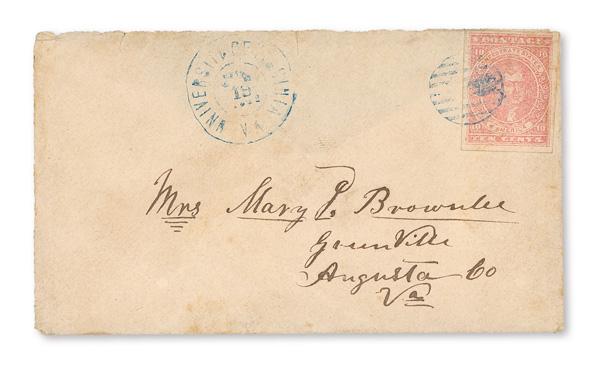 UNIVERSITY OF VIRGINIA VA
18
POSTAGE
10 10
CONFEDERATE STATES
OF AMERICA
10 10
TEN CENTS
Mrs Mary P. Brownlee
GreenVille
Augusta Co
Va